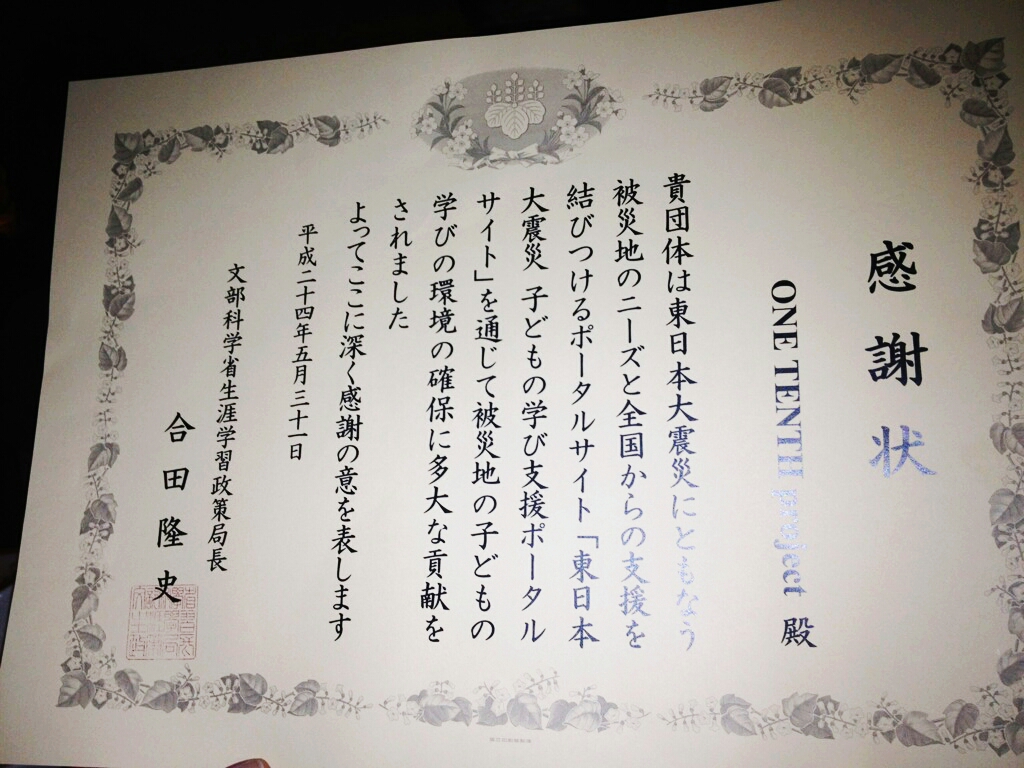 感謝状
ONE TENTH project 殿
貴団体は東日本大震災にともなう
被災地のニーズと全国からの支援を
結びつけるポータルサイト「東日本
大震災 子どもの学び支援ポータル
サイト」を通じて被災地の子どもの
学びの環境の確保に多大な貢献を
されました
よってここに深く感謝の意を表します
平成二十四年五月三十一日
文部科学省生涯学習政策局長
合田隆史